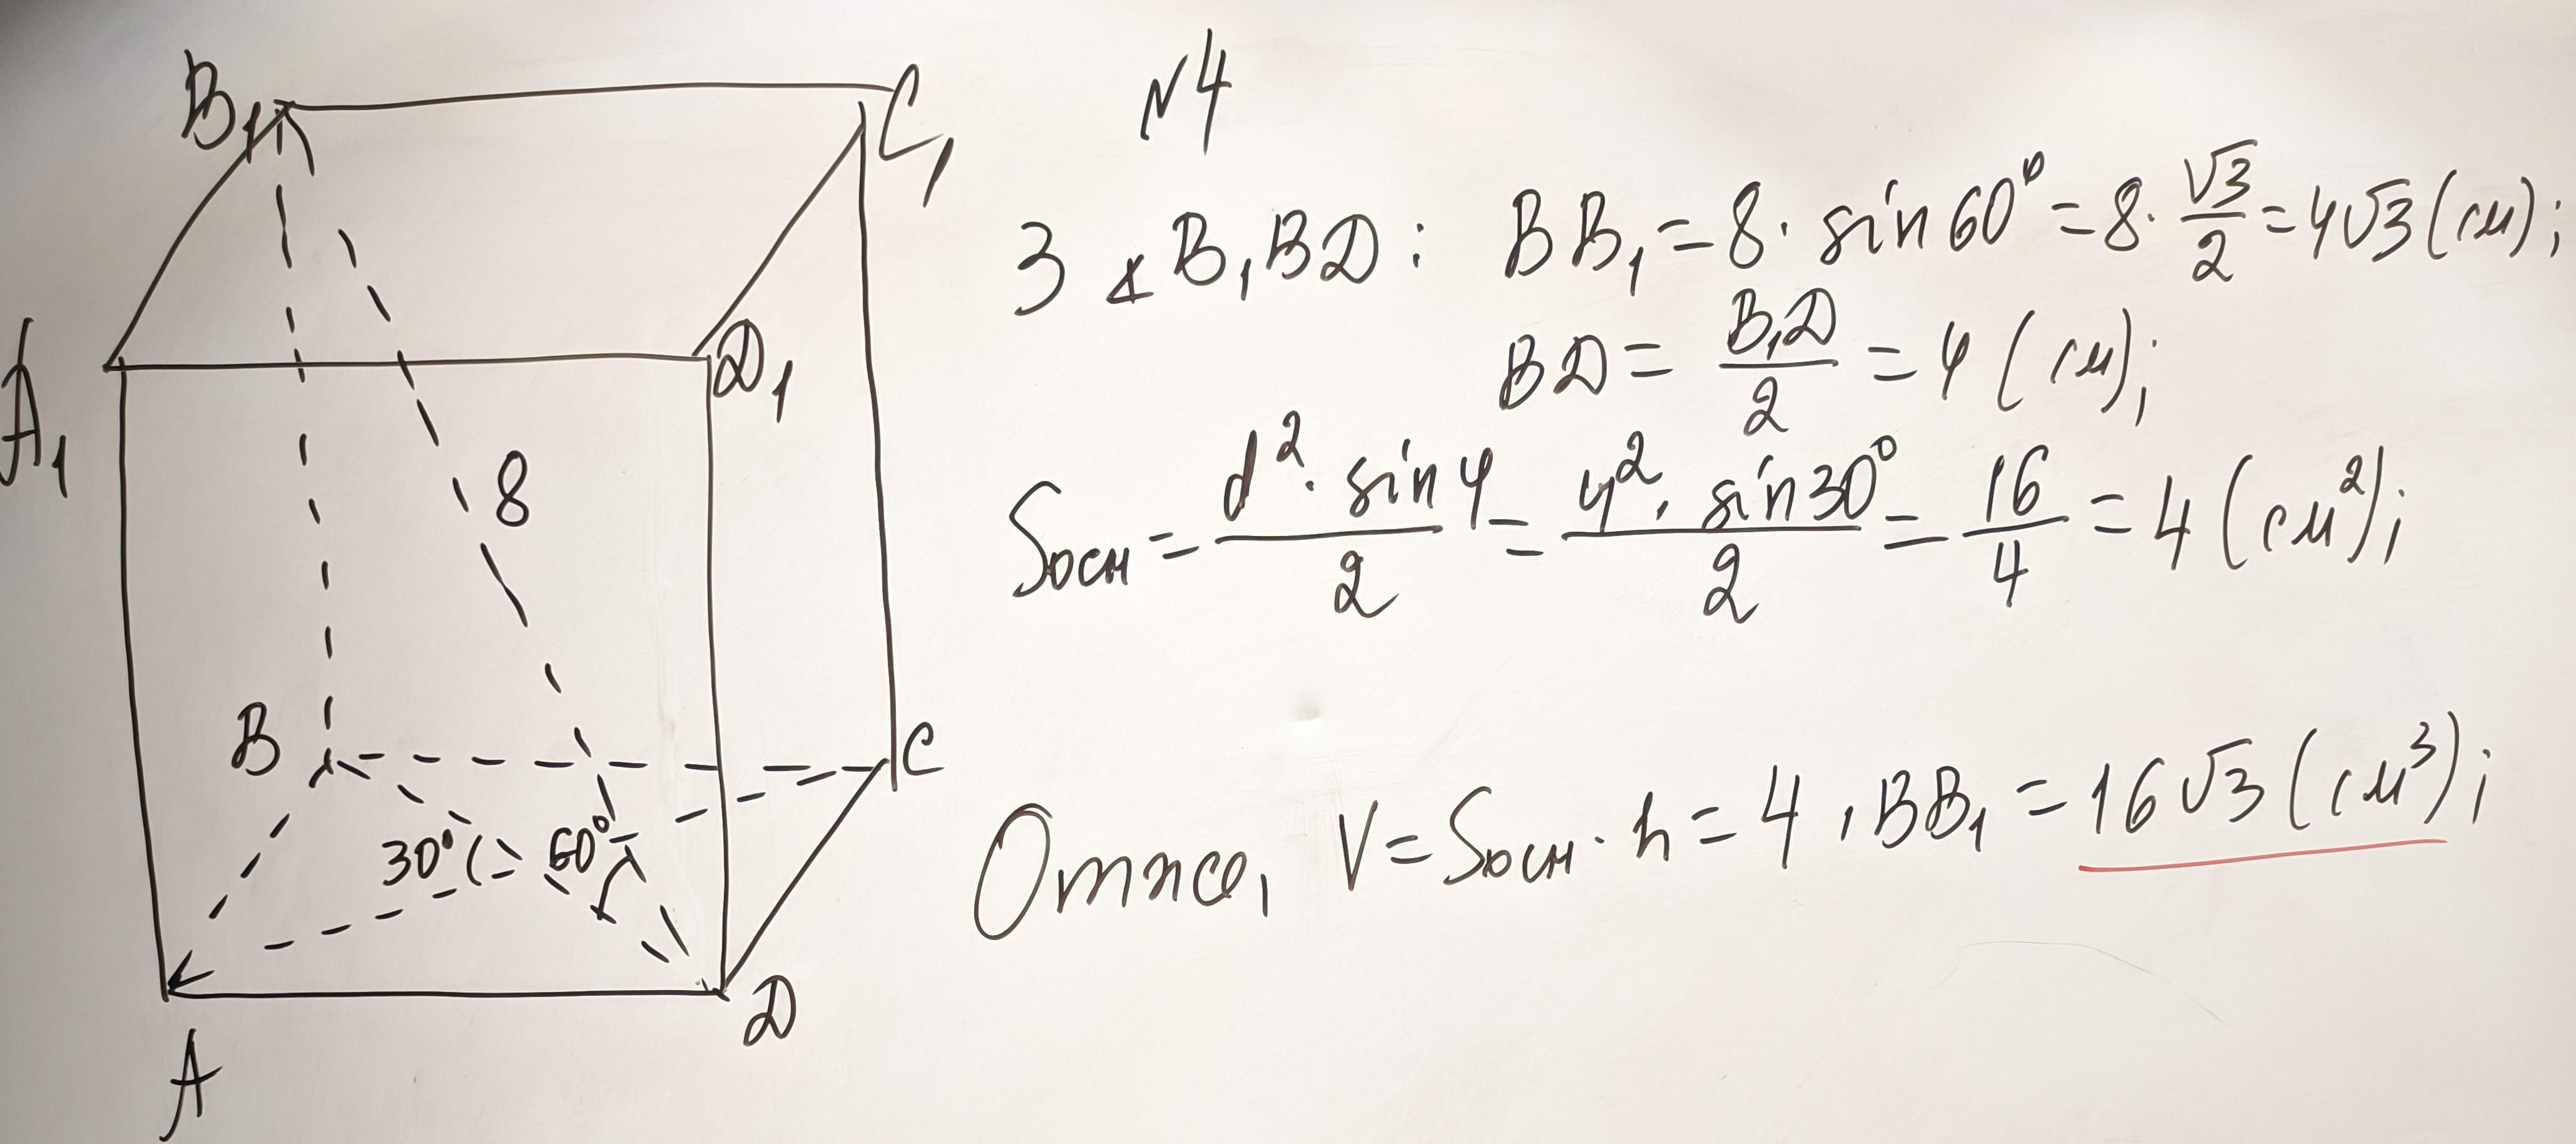 B₁
C₁
A₁
D₁
8
B
C
30°
60°
A
D
N4
З ∆B₁BD: BB₁ = 8 · sin 60° = 8 · √3/2 = 4√3 (см);
BD = B₁D/2 = 4 (см);
Sосн = d² · sin φ / 2 = 4² · sin 30° / 2 = 16/4 = 4 (см²);
Отже, V = Sосн · h = 4 · BB₁ = 16√3 (см³);